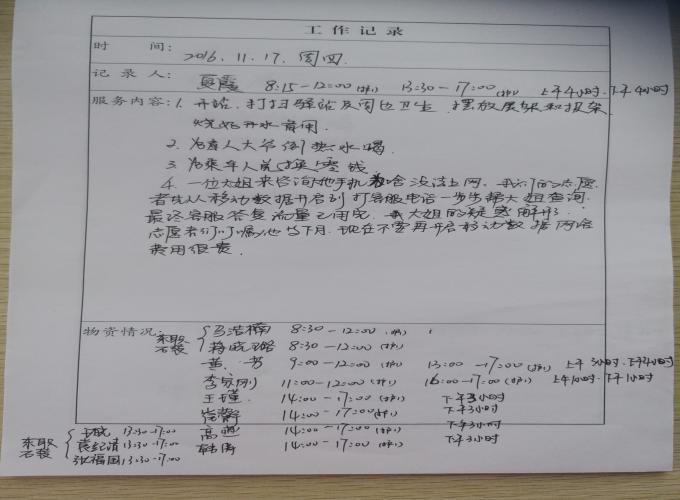 工作记录
时 间: 2016.11.17.周四
记录人: 夏霞 8:15-12:00 13:30-17:00 上午4小时.下午4小时
服务内容:1. 开站,打扫驿站及周边卫生.摆放展架和报架
烧好开水备用.
2. 为盲人大爷倒热水喝.
3. 为乘车人员换零钱
4. 一位大姐来咨询她手机为啥没法上网.我们的志愿
者先从移动数据开启到打客服电话一步步帮大姐查询.
最终客服答复流量已用完. 大姐的疑惑解除.
志愿者们叮嘱她当月.现在不要再开启移动数据网络
费用很贵.
物资情况:
未取 马浩楠 8:30-12:00
石袋 8:30-12:00
黄 芳 9:00-12:00 13:00-17:00 上午3小时.下午4小时
11:00-12:00 16:00-17:00 上午1小时.下午1小时
王瑾 14:00-17:00 下午3小时
14:00-17:00 下午3小时
13:30-17:00 14:00-17:00 下午3小时
未取 袁纪清 13:30-17:00 韩涛 14:00-17:00 下午3小时
张福国 13:30-17:00